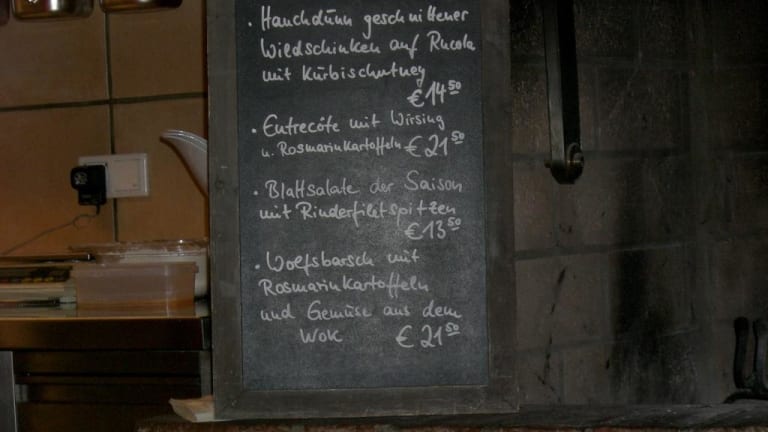 · Hauchdünn geschnittener
Wildschinken auf Rucola
mit Kürbischutney
€ 14 50
· Entrecôte mit Wirsing
u. Rosmarinkartoffeln € 21 50
· Blattsalate der Saison
mit Rinderfiletspitzen
€ 13 50
· Wolfsbarsch mit
Rosmarinkartoffeln
und Gemüse aus dem
Wok € 21 50